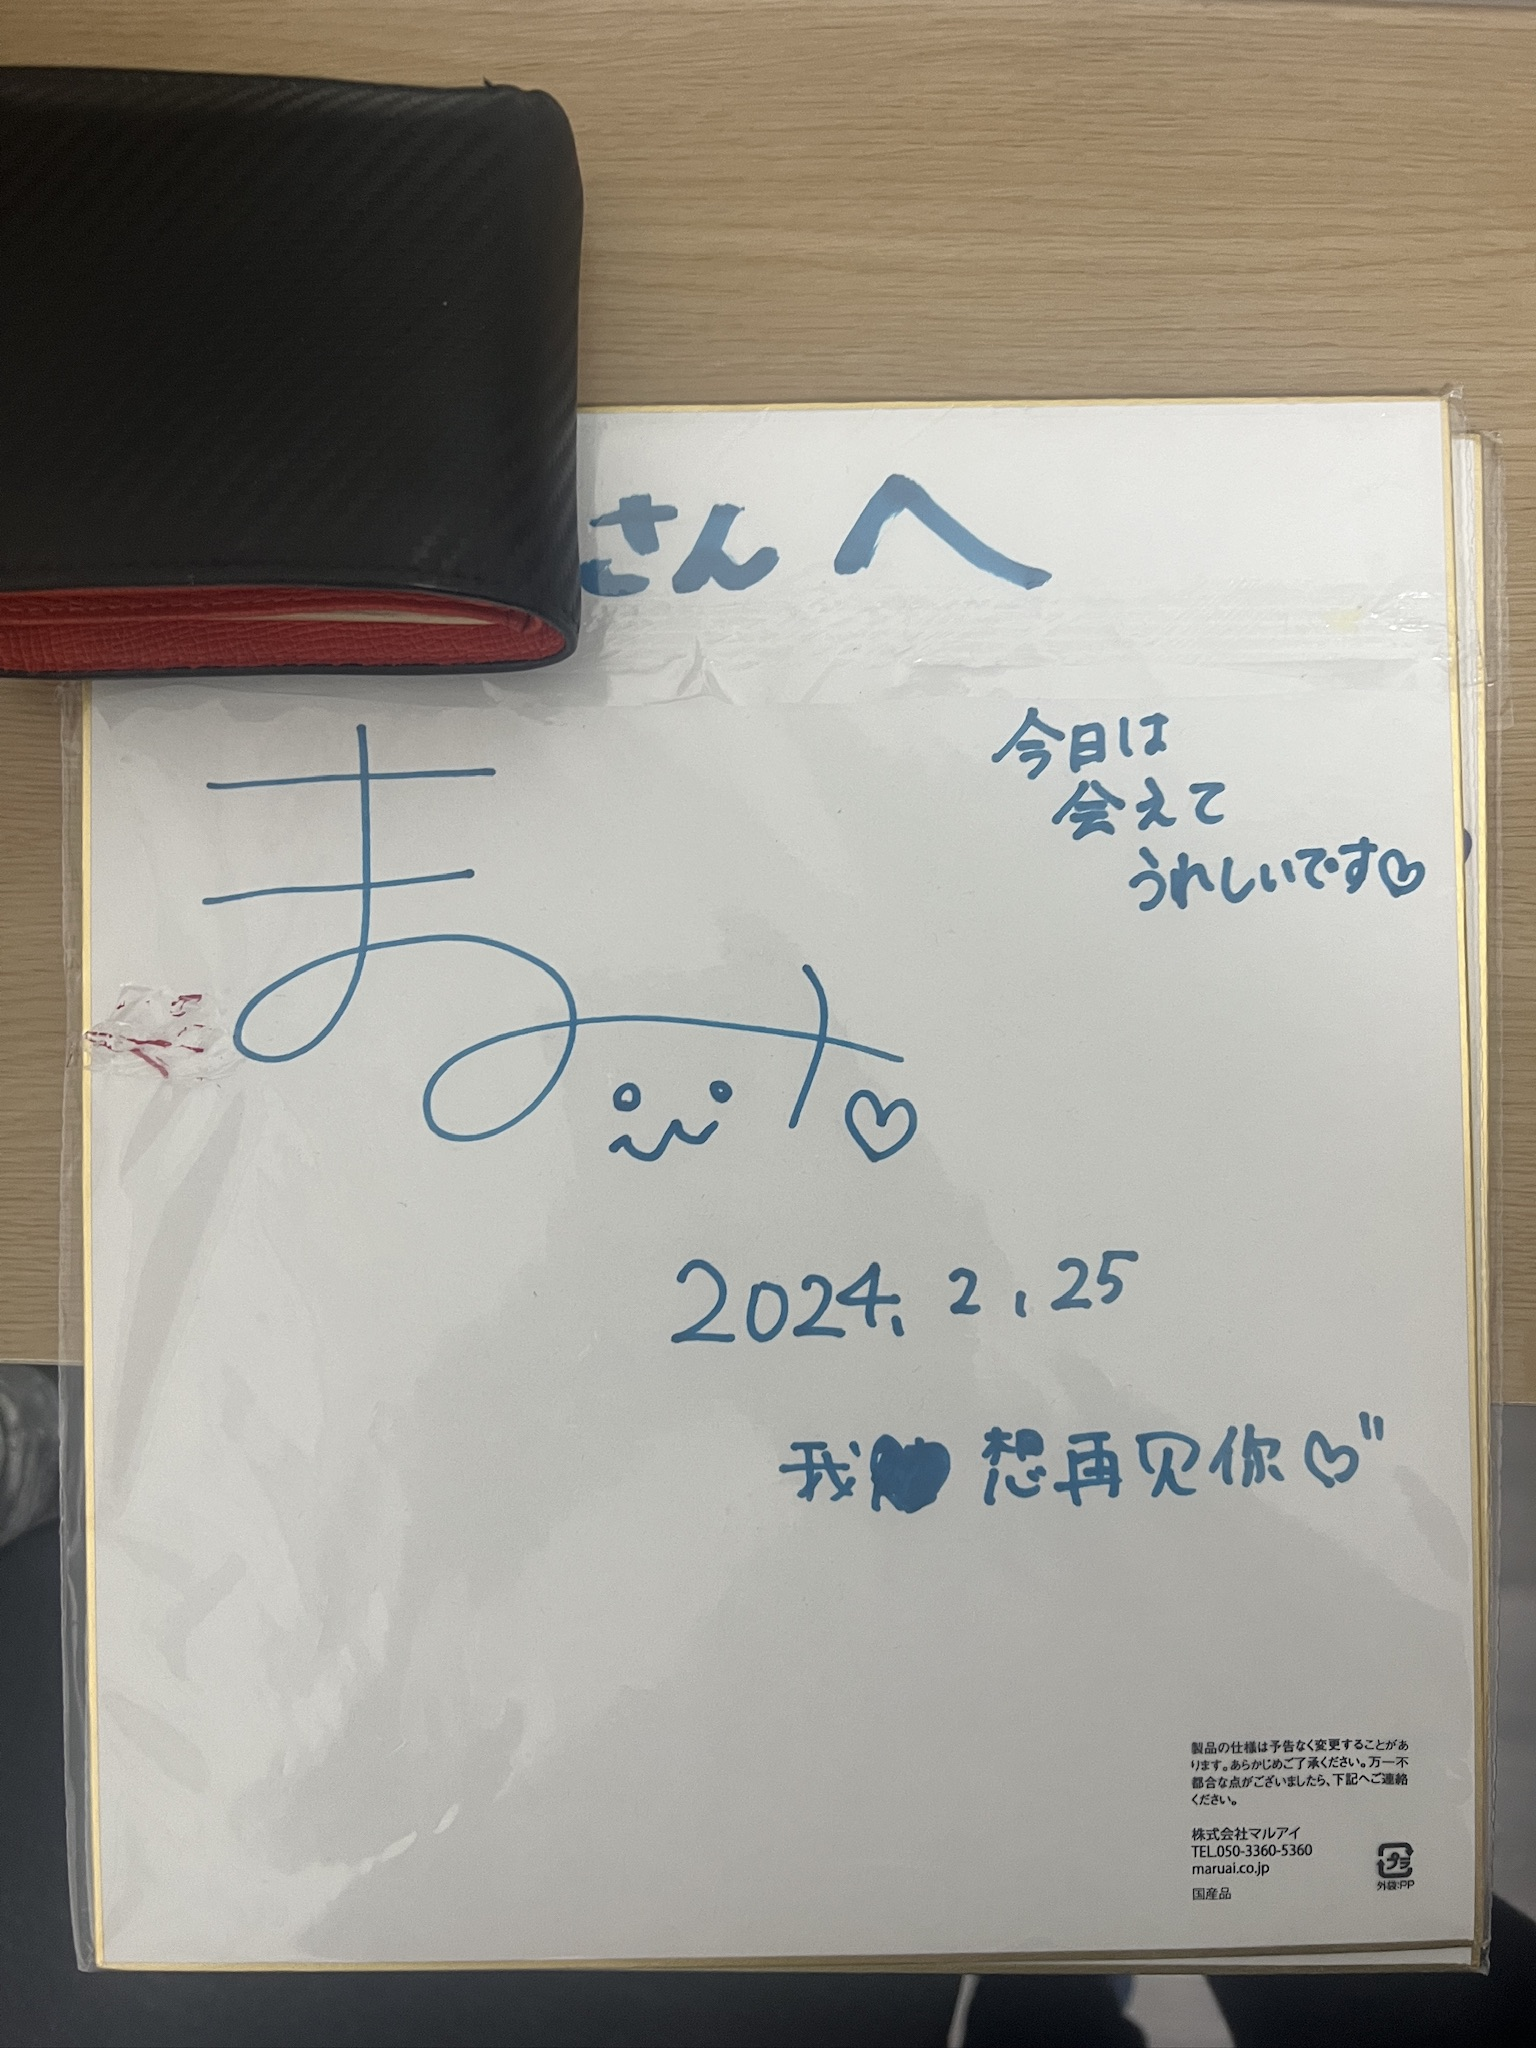 さんへ
まみ
今日は
会えて
うれしいです♡
2024.2.25
我 想再见你♡"
製品の仕様は予告なく変更することがあ
ります。あらかじめご了承ください。万一不
都合な点がございましたら、下記へご連絡
ください。
株式会社マルアイ
TEL.050-3360-5360
maruai.co.jp
国産品
プラ
外袋:PP